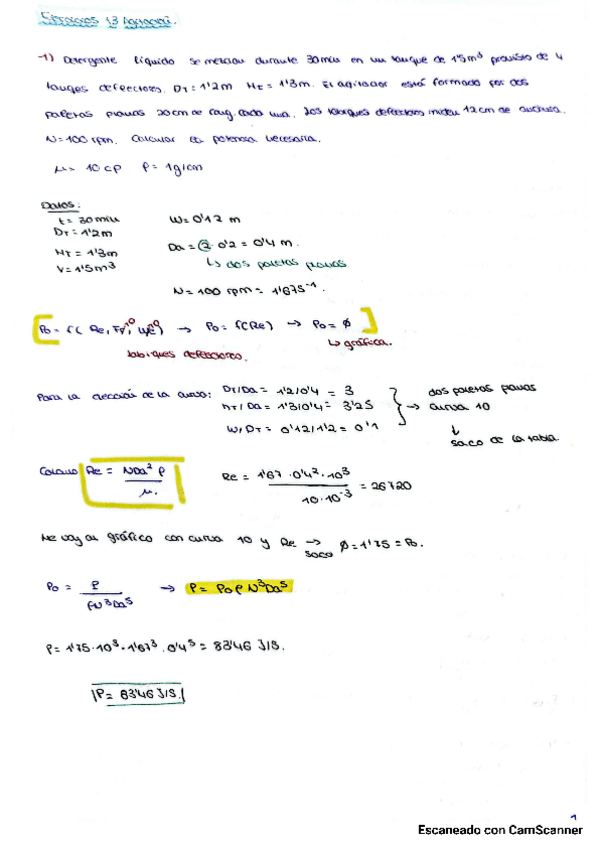 Ejercicios 13 Agitación.
-1) Detergente líquido se mezclan durante 30 min en un tanque de 1'5m³ provisto de 4
tanques deflectores. DT = 1'2m HT = 1'3m. El agitador está formado por dos
paletas planas 20cm de long. cada una. Los tabiques deflectores miden 12cm de anchura.
N=100 rpm. Calcular la potencia necesaria.
μ = 10 cp ρ = 1g/cm
Datos:
t = 30 min
DT = 1'2m
HT = 1'3m
V = 1'5m³
W = 0'12 m
Da = 2·0'2 = 0'4 m.
↳ dos paletas planas
N = 100 rpm = 1'67s⁻¹.
Po = f(Re, Fr, We) → Po = f(Re) → Po = ϕ
tabiques deflectores.
↳ gráfica.
Para la elección de la curva: DT/Da = 1'2/0'4 = 3
HT/Da = 1'3/0'4 = 3'25
W/DT = 0'12/1'2 = 0'1
→ dos paletas planas
curva 10
↓
saco de la tabla.
Calculo Re = NDa²ρ / μ.
Re = 1'67·0'4²·10³ / 10·10⁻³ = 26720
Me voy al gráfico con curva 10 y Re → saco ϕ = 1'75 = Po.
Po = P / ρN³Da⁵ → P = PoρN³Da⁵
P = 1'75·10³·1'67³·0'4⁵ = 83'46 J/s.
P = 83'46 J/s.
1
Escaneado con CamScanner